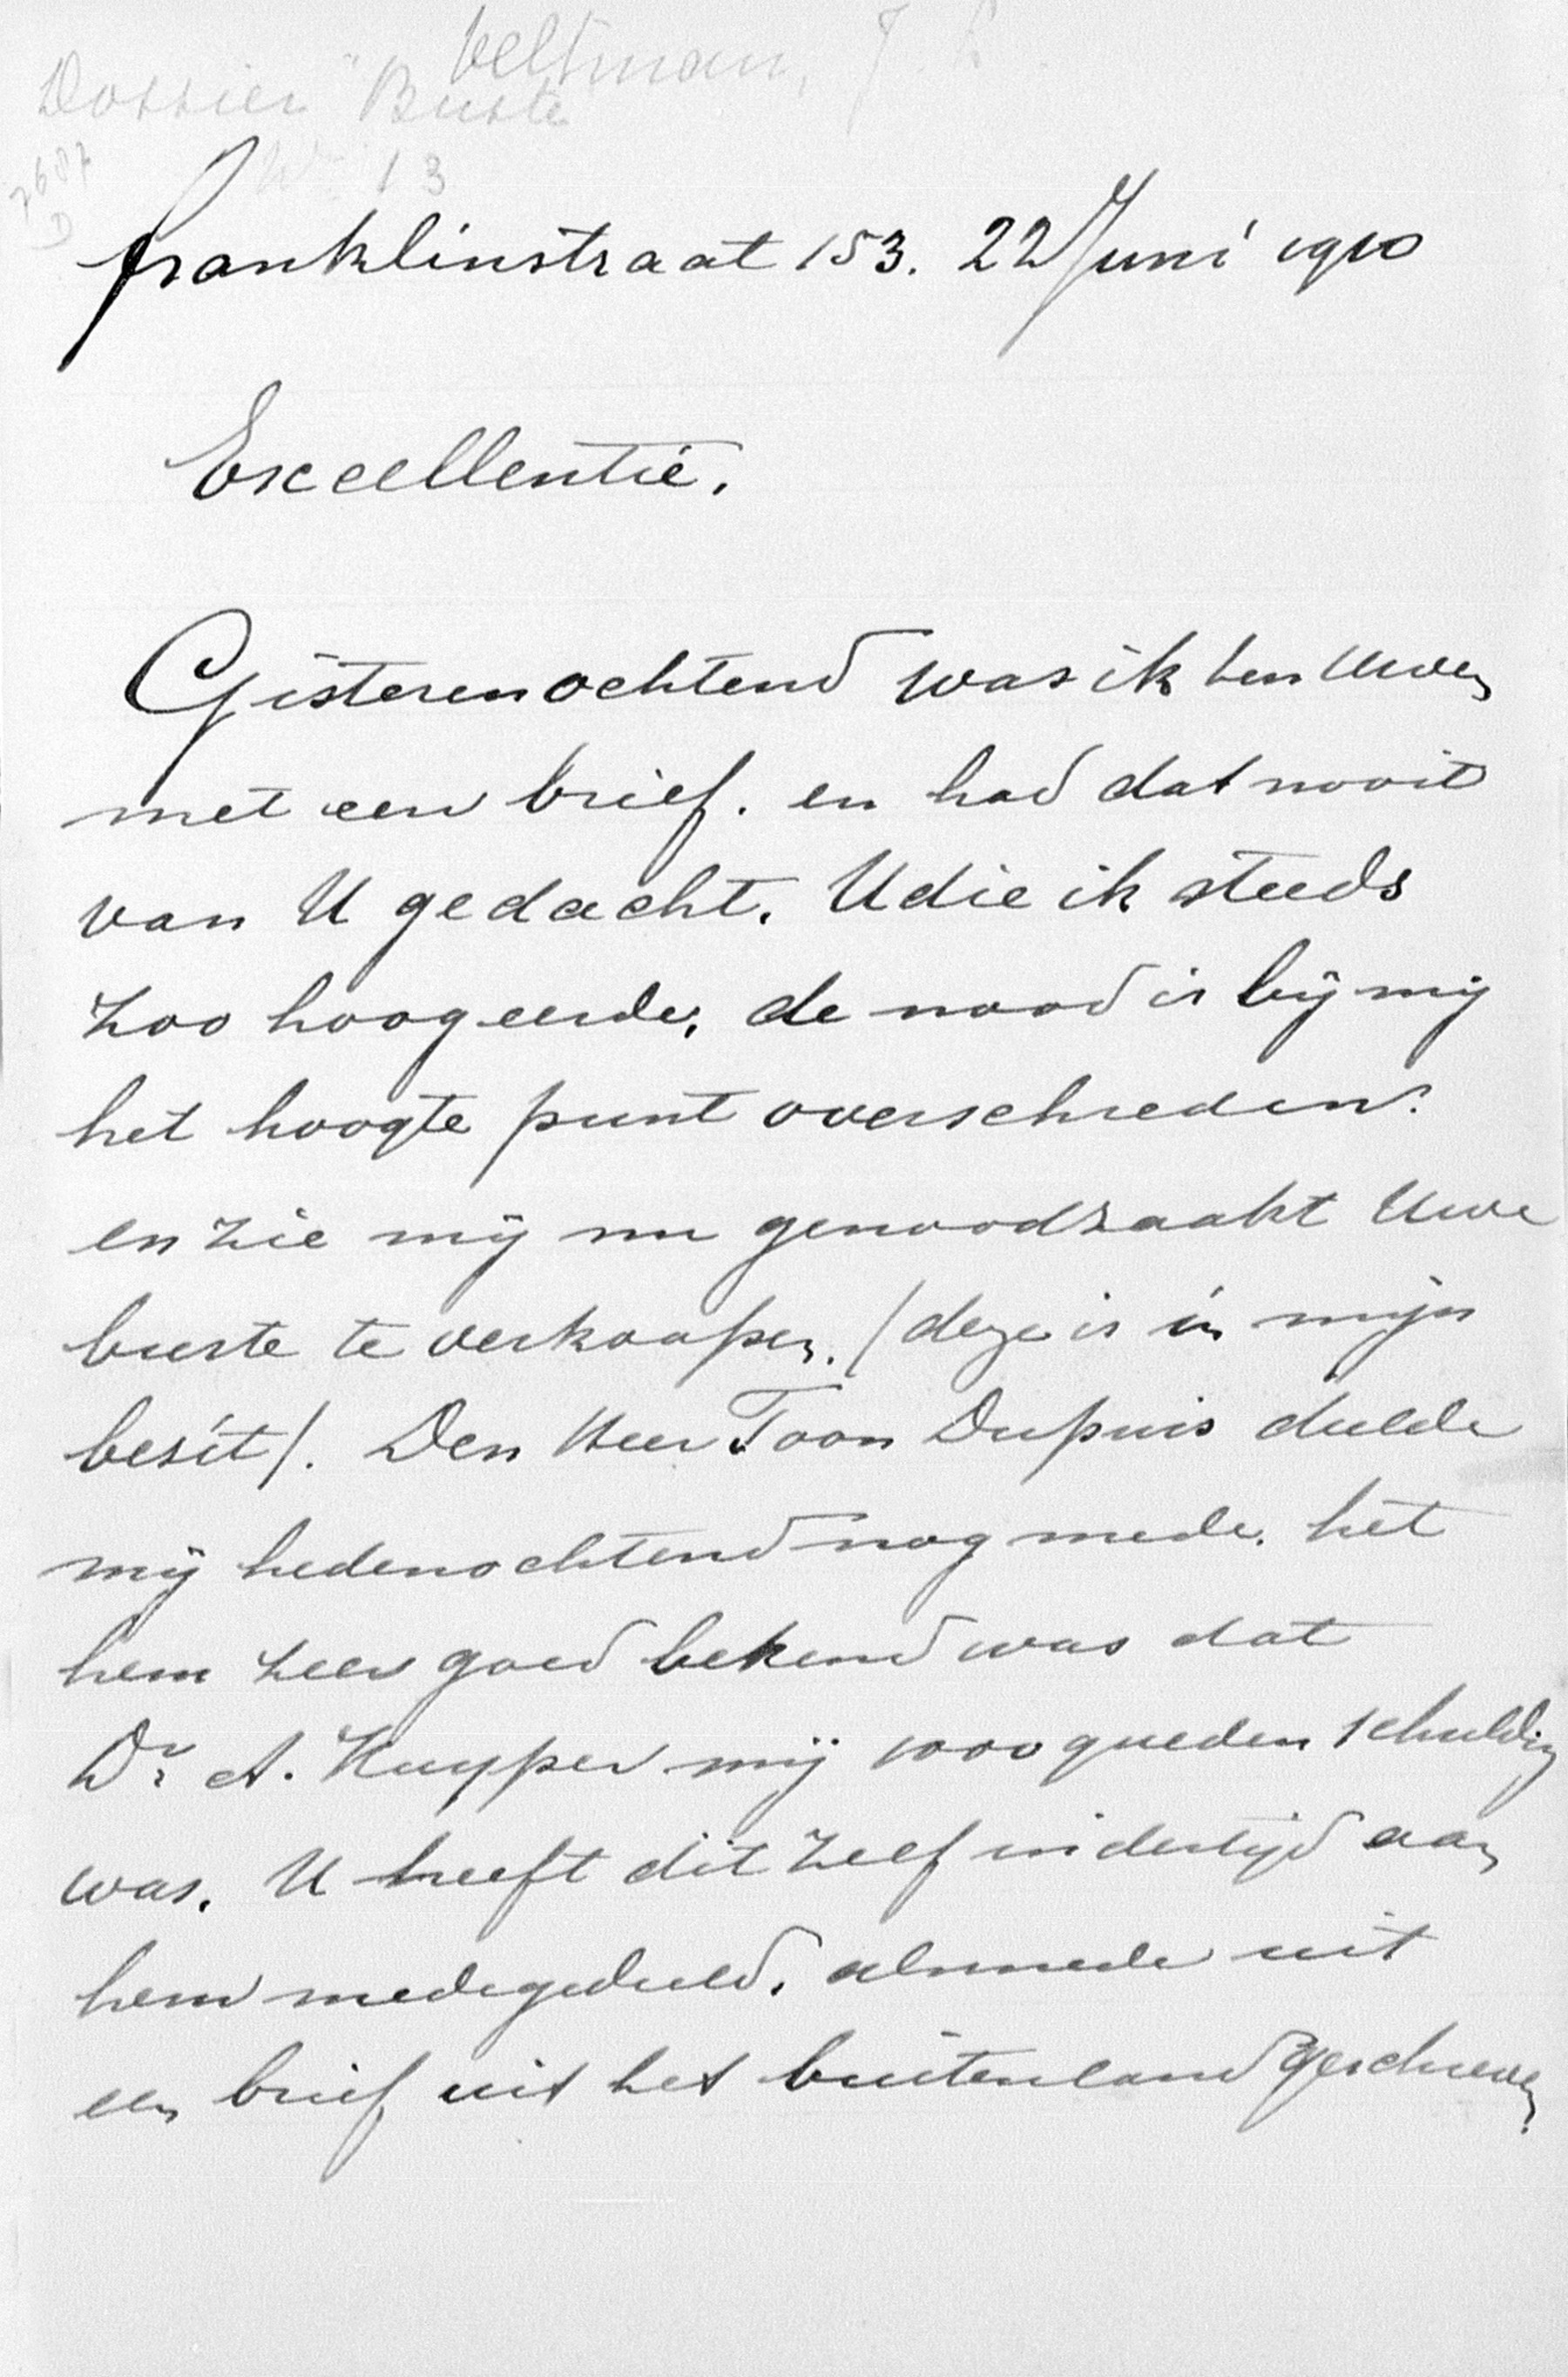 Veltman, J. L.
Dossier "Buste
7687
D
No 13
Franklinstraat 153. 22 Juni 1910
Excellentie.
Gisterenochtend was ik ten Uwen
met een brief. en had dat nooit
van U gedacht. U die ik steeds
zoo hoog eerde, de nood is bij mij
het hoogte punt overschreden.
en zie mij nu genoodzaakt Uwe
buste te verkoopen. (deze is in mijn
besit). Den Heer Toon Dupuis deelde
mij hedenochtend nog mede. het
hem zeer goed bekend was dat
Dr A. Kuyper mij 1000 gueden schuldig
was. U heeft dit zelf indertijd aan
hem medegedeeld. alsmede uit
een brief uit het buitenland geschreven